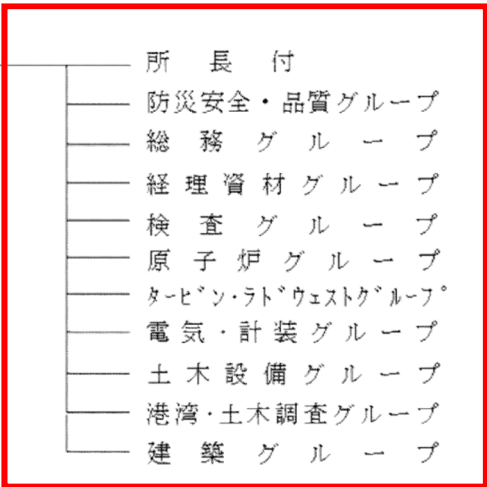 所長付
防災安全・品質グループ
総務グループ
経理資材グループ
検査グループ
原子炉グループ
ﾀｰﾋﾞﾝ・ﾗﾄﾞｳｪｽﾄｸﾞﾙｰﾌﾟ
電気・計装グループ
土木設備グループ
港湾・土木調査グループ
建築グループ